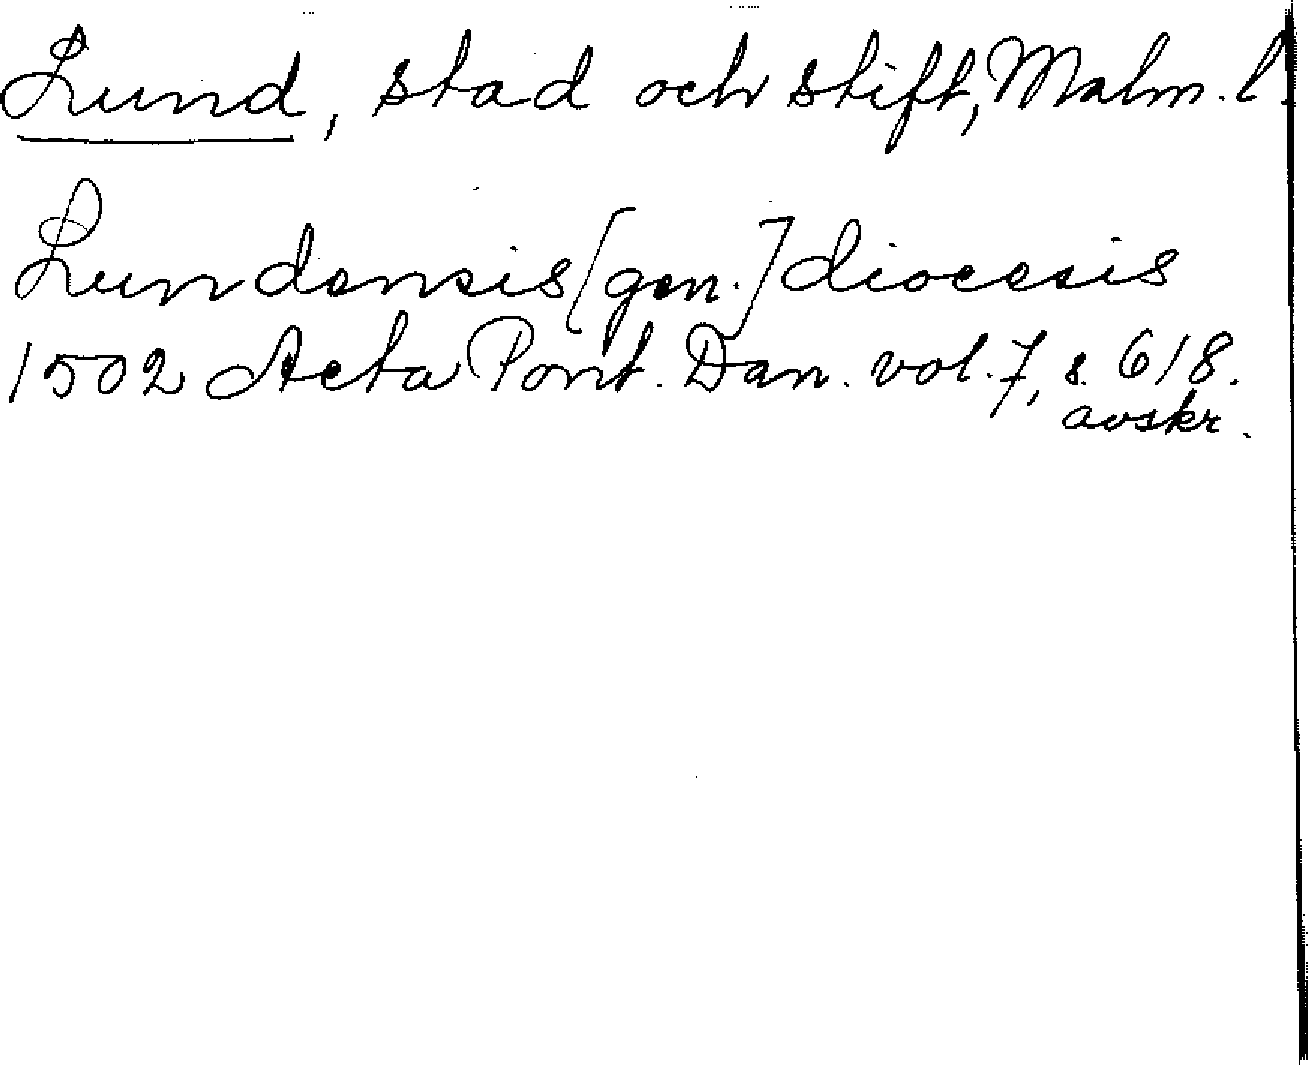 Lund, stad och stift, Malm. l.
Lundensis [gen.] diocesis
1502 Acta Pont. Dan. vol. 7, s. 618.
avskr.